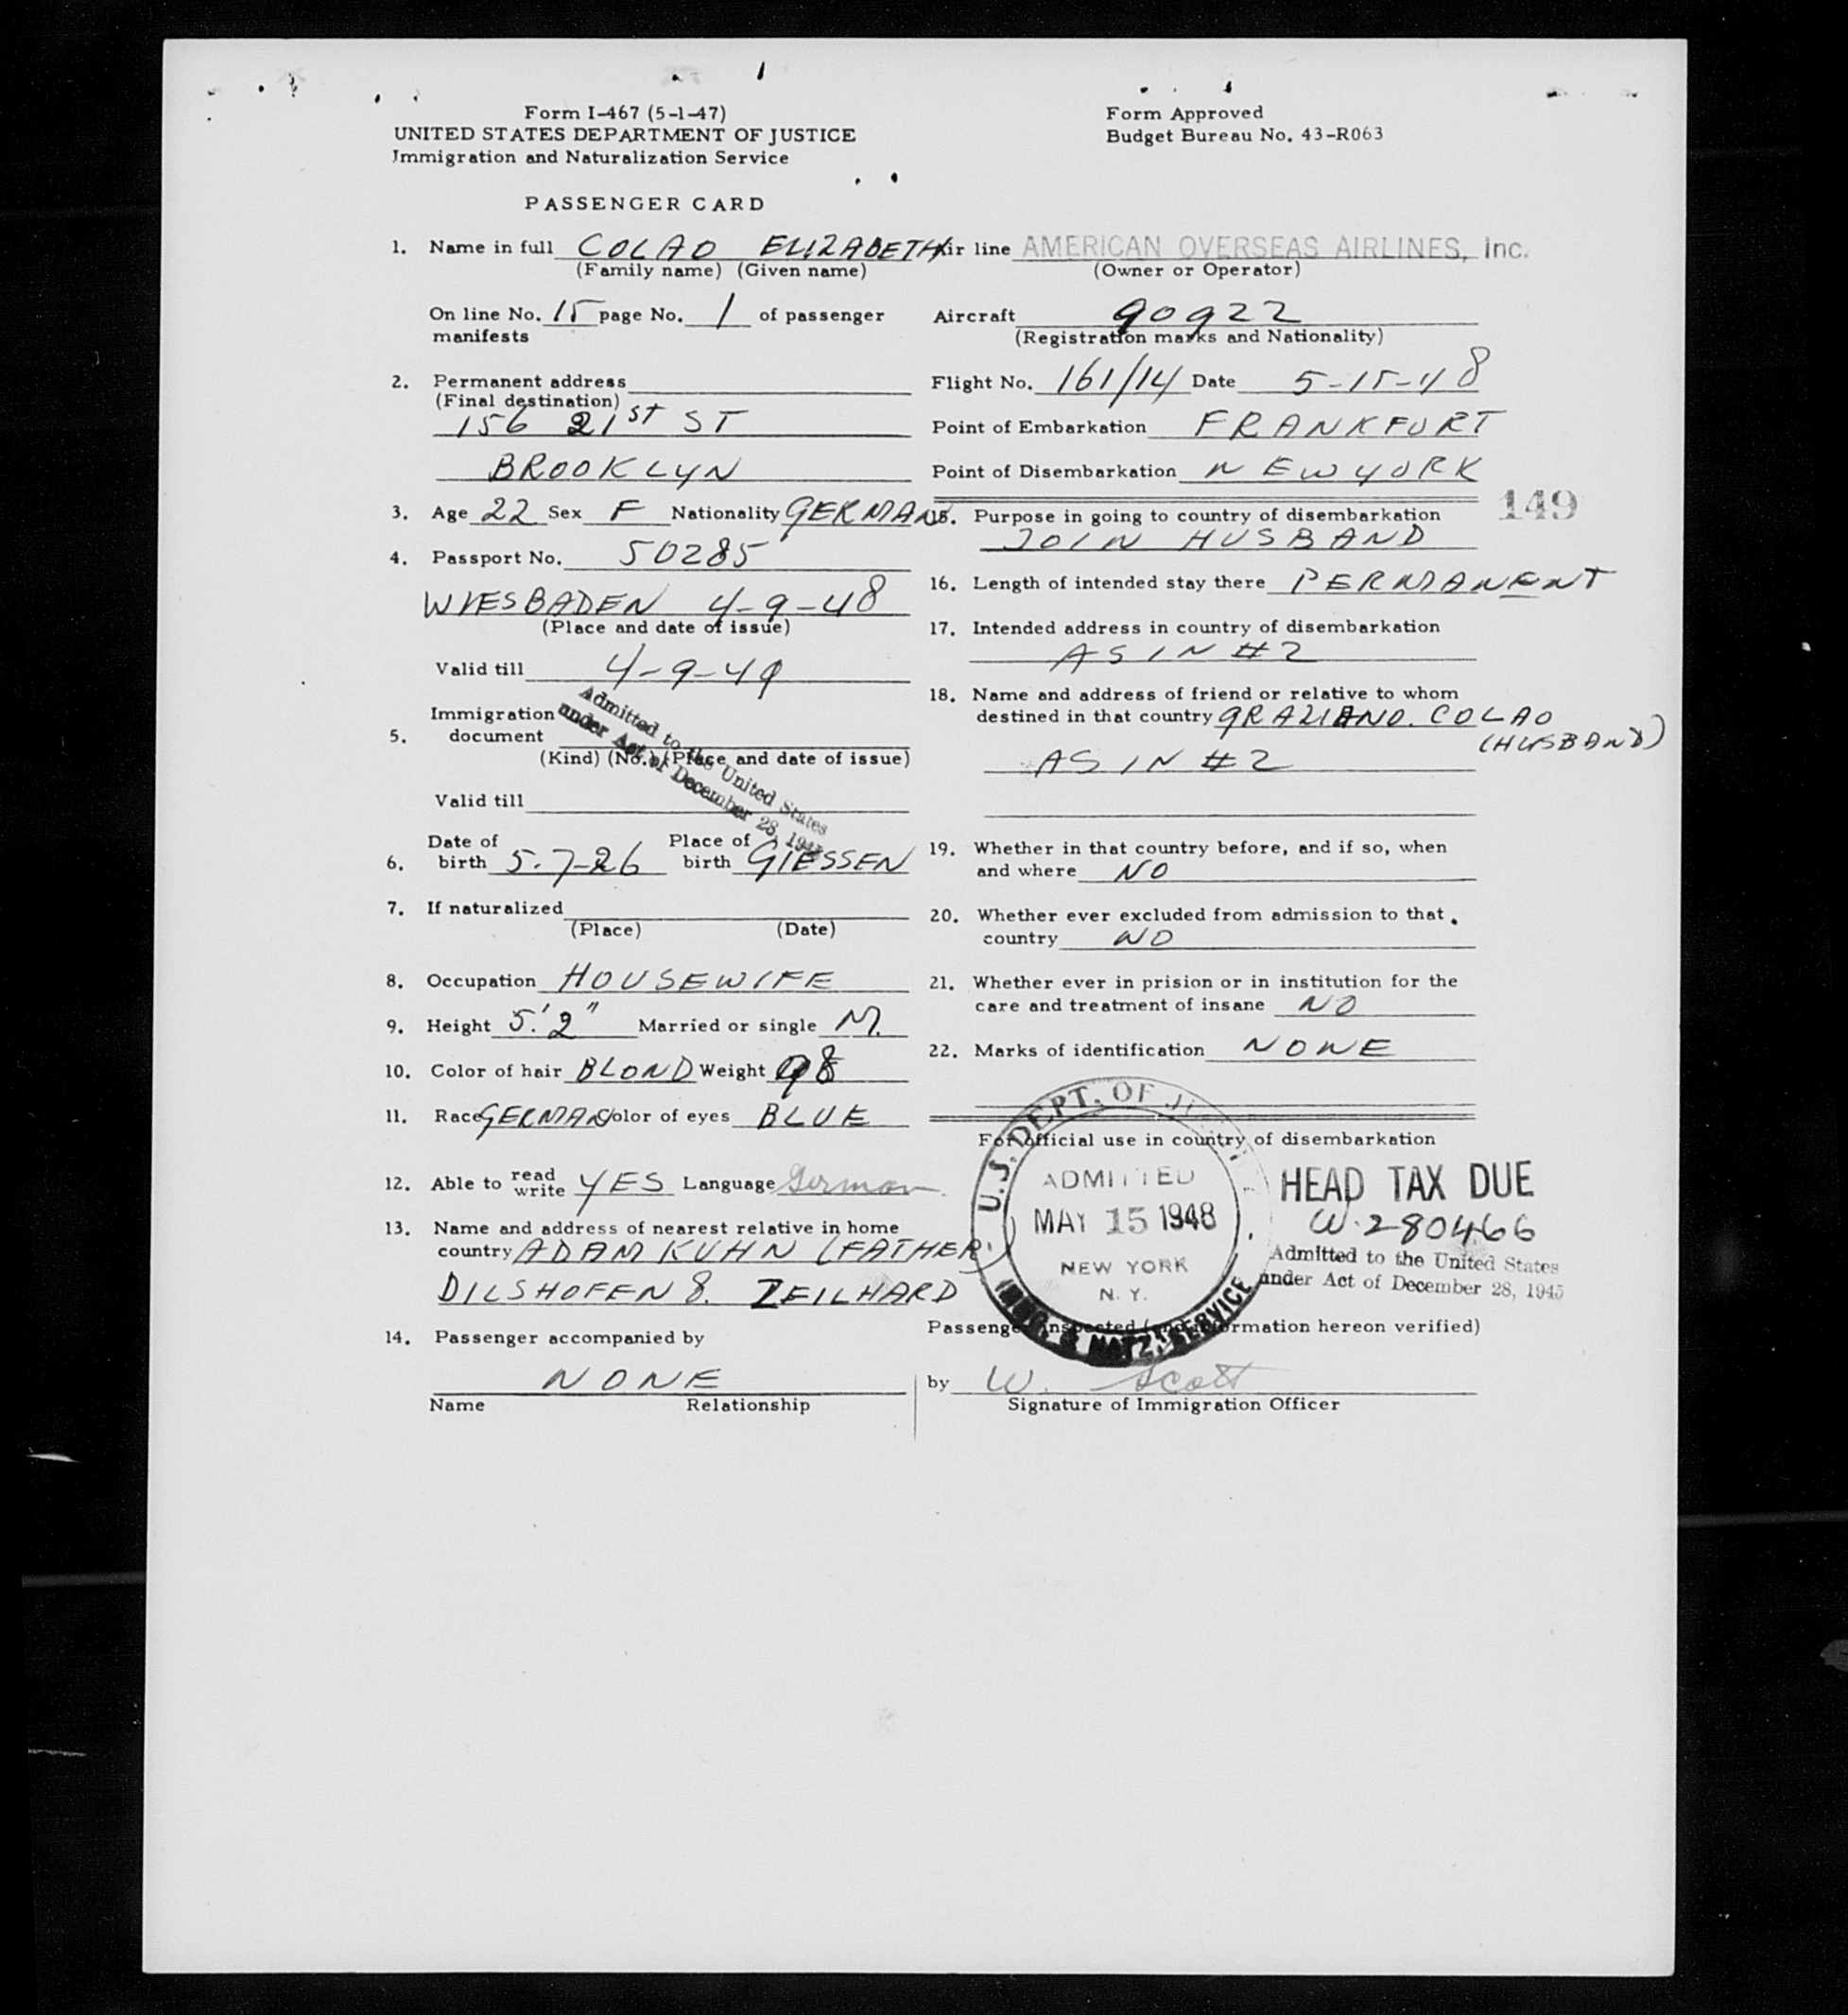 Form I-467 (5-1-47)
UNITED STATES DEPARTMENT OF JUSTICE
Immigration and Naturalization Service
Form Approved
Budget Bureau No. 43-R063
PASSENGER CARD
1. Name in full COLAO ELIZABETH
(Family name) (Given name)
On line No. 15 page No. 1 of passenger
manifests
2. Permanent address
(Final destination)
156 21st ST
BROOKLYN
3. Age 22 Sex F Nationality GERMAN
4. Passport No. 50285
WIESBADEN 4-9-48
(Place and date of issue)
Valid till 4-9-49
Admitted to the United States
under Act of December 28, 1945
5. Immigration
document
(Kind) (No.) (Place and date of issue)
Valid till
6. Date of birth 5-7-26 Place of birth GIESSEN
7. If naturalized
(Place) (Date)
8. Occupation HOUSEWIFE
9. Height 5'2" Married or single M.
10. Color of hair BLOND Weight 98
11. Race GERMAN Color of eyes BLUE
12. Able to read write YES Language German
13. Name and address of nearest relative in home
country ADAM KUHN (FATHER)
DILSHOFEN 8. ZEILHARD
14. Passenger accompanied by
NONE
Name Relationship
Air line AMERICAN OVERSEAS AIRLINES, Inc.
(Owner or Operator)
Aircraft 90922
(Registration marks and Nationality)
Flight No. 161/14 Date 5-15-48
Point of Embarkation FRANKFURT
Point of Disembarkation NEW YORK
149
15. Purpose in going to country of disembarkation
JOIN HUSBAND
16. Length of intended stay there PERMANENT
17. Intended address in country of disembarkation
AS IN #2
18. Name and address of friend or relative to whom
destined in that country GRAZIANO. COLAO
(HUSBAND)
AS IN #2
19. Whether in that country before, and if so, when
and where NO
20. Whether ever excluded from admission to that
country NO
21. Whether ever in prision or in institution for the
care and treatment of insane NO
22. Marks of identification NONE
For official use in country of disembarkation
U.S. DEPT. OF JUSTICE
ADMITTED
MAY 15 1948
NEW YORK
N. Y.
IMMG. & NATZ. SERVICE
HEAD TAX DUE
W. 280466
Admitted to the United States
under Act of December 28, 1945
Passenger inspected (and information hereon verified)
by W. Scott
Signature of Immigration Officer